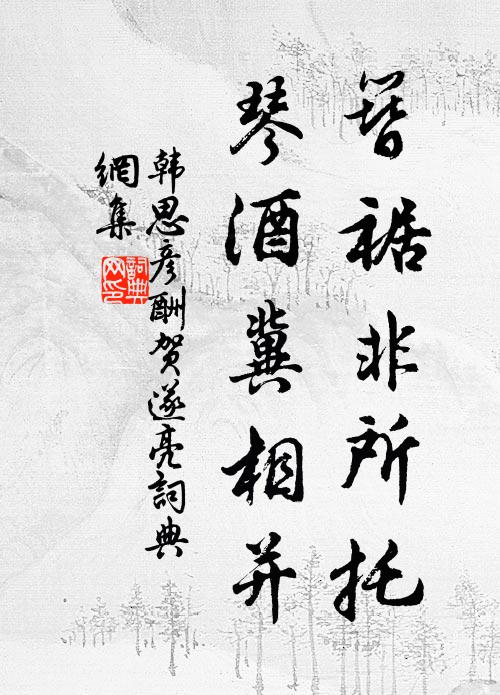 簪裾非所托
琴酒冀相并
韩思彦酬贺遂亮詞典
網集
詞典网印